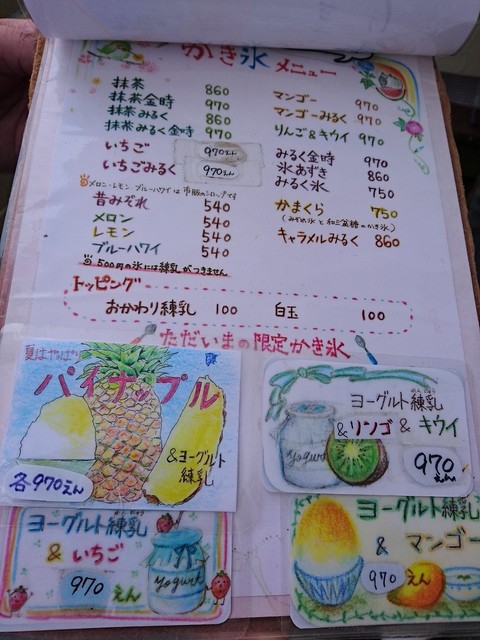 かき氷メニュー
抹茶 860
抹茶金時 970
抹茶みるく 860
抹茶みるく金時 970
いちご 970えん
いちごみるく 970えん
メロン・レモン ブルーハワイは市販のシロップです
昔みぞれ 540
メロン 540
レモン 540
ブルーハワイ 540
500円の氷には練乳がつきません
マンゴー 970
マンゴーみるく 970
りんご&キウイ 970
みるく金時 970
氷あずき 860
みるく氷 750
かまくら 750
(みぞれ氷と和三盆糖のかき氷)
キャラメルみるく 860
トッピング
おかわり練乳 100 白玉 100
ただいまの限定かき氷
夏はやっぱり
パイナップル
&ヨーグルト
練乳
各970えん
ヨーグルト練乳
&リンゴ&キウイ
Yogurt
970
えん
ヨーグルト練乳
&いちご
970えん
Yogurt
ヨーグルト練乳
&
マンゴー
970えん